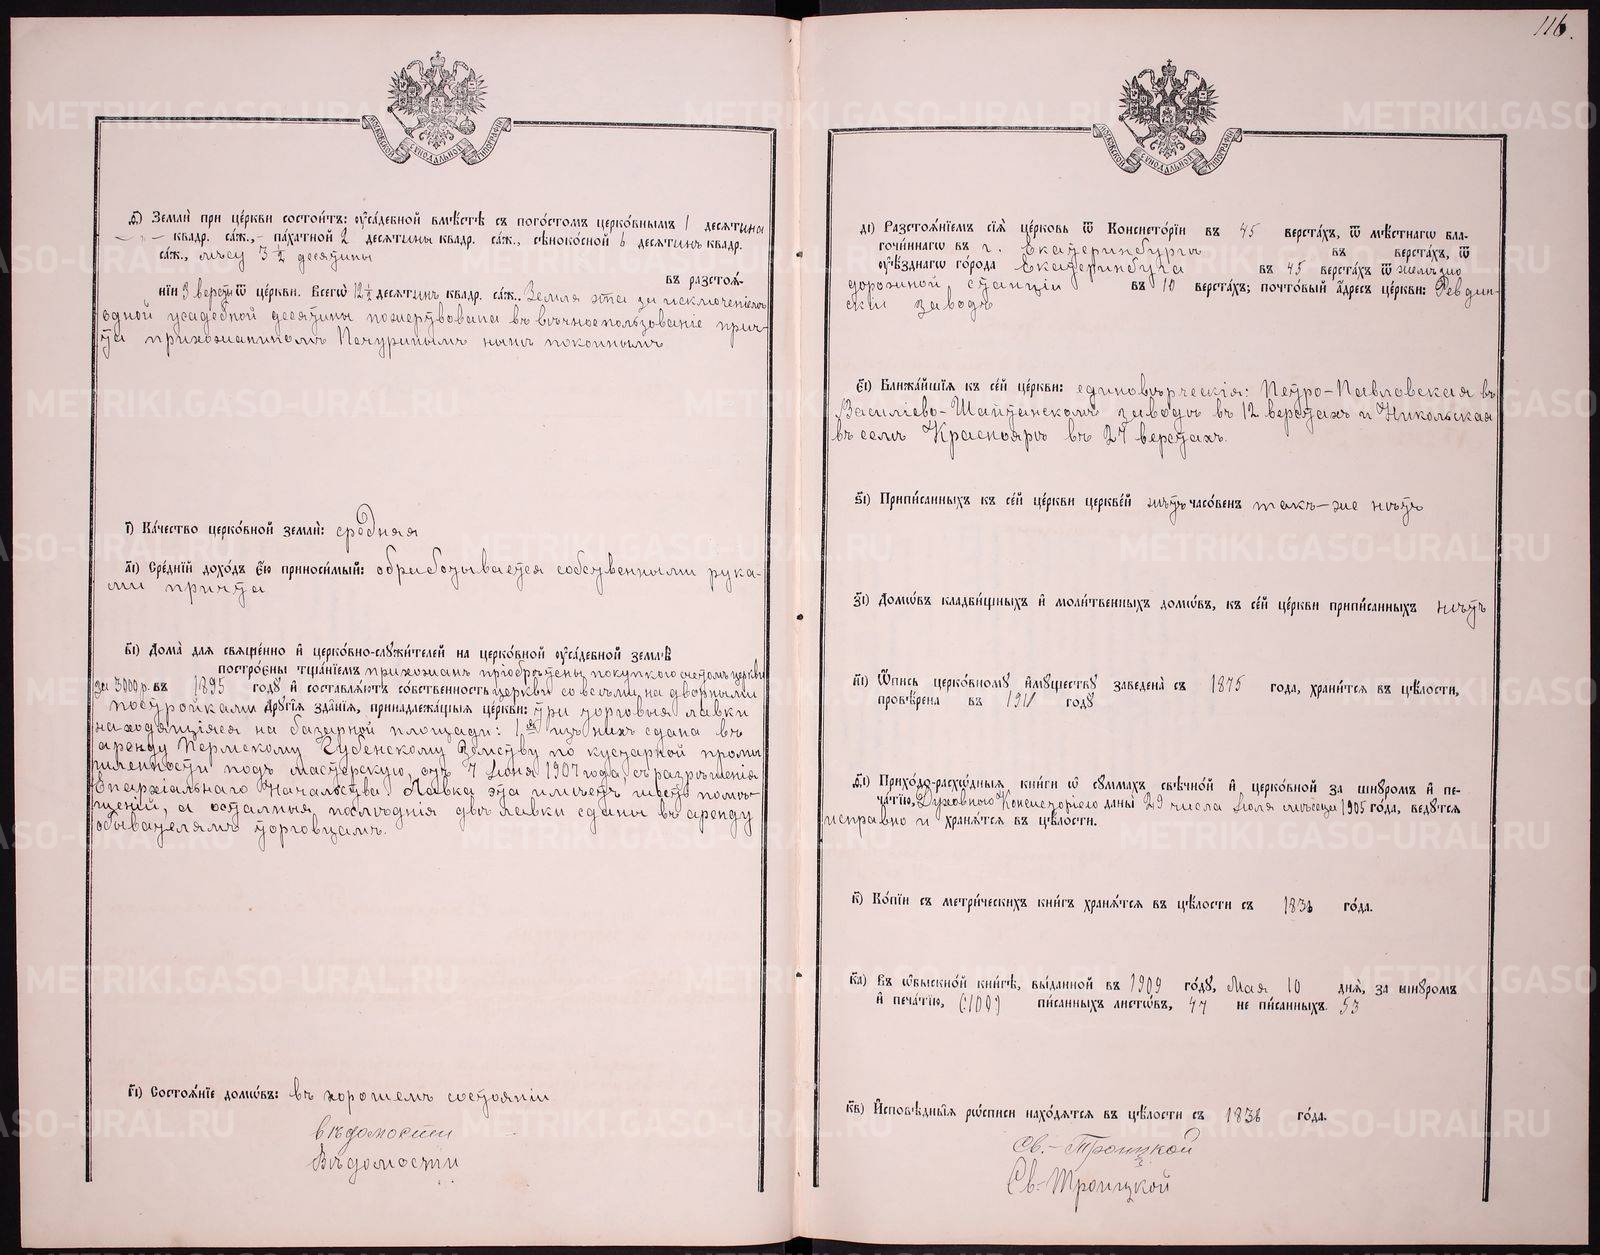 116.
МОСКОВСКОЙ СѴНОДАЛЬНОЙ ТИПОГРАФІИ
ѳ҃) Землѝ при це́ркви состои́тъ: ᲂу҆са́дебной вмѣ́стѣ съ пого́стомъ церко́внымъ 1 десѧтина
— „ — квадр. са́ж., – па́хатной 2 десѧтины квадр. са́ж., сѣноко́сной 6 десѧтинъ квадр.
са́ж., лѣсу 3 ½ десятины
въ разстоѧ́-
нїи 3 версты ѿ це́ркви. Всегѡ̀ 12 ½ десѧтинъ квадр. са́ж.. Земля эта за исключеніемъ
одной усадебной десятины пожертвована въ вѣчное пользованіе прич-
та прихожаниномъ Печуринымъ нынѣ покойнымъ
і҃) Ка́чество церко́вной землѝ: средняя
а҃і) Сре́днїй дохо́дъ є҆́ю приноси́мый: обработывается собственными рука-
ми причта
в҃і) Дома̀ для свѧще́нно и҆ церко́вно-слꙋжи́телей на церко́вной ᲂу҆са́дебной землѣ̀
постро́ены тща́нїемъ прихожанъ пріобрѣтены покупкою счетомъ церкви
за 3000 р. въ 1895 годꙋ̀ и҆ составлѧ́ютъ со́бственность церкви со всѣми надворными
постройками Дрꙋгі̑ѧ зда̑нїѧ, принадлежа́щыѧ це́ркви: три торговыя лавки
находящіяся на базарной площади: 1ая изъ нихъ сдана въ
аренду Пермскому Губенскому Земству по кустарной промы
шленности подъ мастерскую, отъ 7 Іюня 1907 года, съ разрѣшенія
Епархіальнаго Начальства Лавка эта имѣетъ шесть помѣ-
щеній, а осталныя, послѣднія двѣ лавки сданы въ аренду
обывателямъ торговцамъ.
г҃і) Состоѧ́нїе домѡ́въ: въ хорошемъ состояніи
вѣдомости
Вѣдомости
МОСКОВСКОЙ СѴНОДАЛЬНОЙ ТИПОГРАФІИ
д҃і) Разстоѧ́нїемъ сїѧ̀ це́рковь ѿ Консисто́рїи въ 45 верста́хъ, ѿ мѣ́стнагѡ бла-
гочи́ннагѡ въ г. Екатеринбурге въ верста́хъ, ѿ
ᲂу҆ѣ́зднагѡ го́рода Екатеринбурга въ 45 верста́хъ ѿ желѣзно
дорожной станціи въ 10 верста́хъ; почто́вый а҆́дресъ це́ркви: Ревдин-
скій заводъ
є҃і) Ближа́йшїѧ къ се́й це́ркви: единовѣрческія: Петро-Павловская въ
Васильево-Шайтанскомъ заводѣ въ 12 верстахъ и Никольская
въ селѣ Краснояръ въ 27 верстахъ.
ѕ҃і) Припи́санныхъ къ се́й це́ркви церкве́й нѣтъ часо́венъ такъ-же нѣтъ
з҃і) Домѡ́въ кладби́щныхъ и҆ моли́твенныхъ домѡ́въ, къ се́й це́ркви припи́санныхъ нѣтъ
и҃і) Ѻ҆́пись церко́вномꙋ и҆мꙋ́ществꙋ заведена̀ съ 1875 года, храни́тсѧ въ цѣ́лости,
провѣ́рена въ 1911 годꙋ̀
ѳ҃і) Прихо́до-расхо́дныѧ кни́ги ѡ҆ сꙋ́ммахъ свѣчно́й и҆ церко́вной за шнꙋро́мъ и҆ пе-
ча́тїю, Духовною Консисторіею даны̀ 29 числа Іюля мѣсяца 1905 го́да, ведꙋ́тсѧ
исправно и хранѧ́тсѧ въ цѣ́лости.
к҃) Ко́пїи съ метри́ческихъ кни́гъ хранѧ́тсѧ въ цѣ́лости съ 1838 го́да.
к҃а) Въ ѡ҆бы́скной кни́гѣ, вы́данной въ 1909 го́дꙋ, Мая 10 днѧ̀, за шнꙋро́мъ
и҆ печа́тїю, (:100) пи́санныхъ листѡ́въ, 47 не пи́санныхъ. 53
к҃в) И҆сповѣ́дныѧ рѡ́списи нахо́дѧтсѧ въ цѣ́лости съ 1838 го́да.
Св.-Троицкой
Св.-Троицкой
METRIKI.GASO-URAL.RU